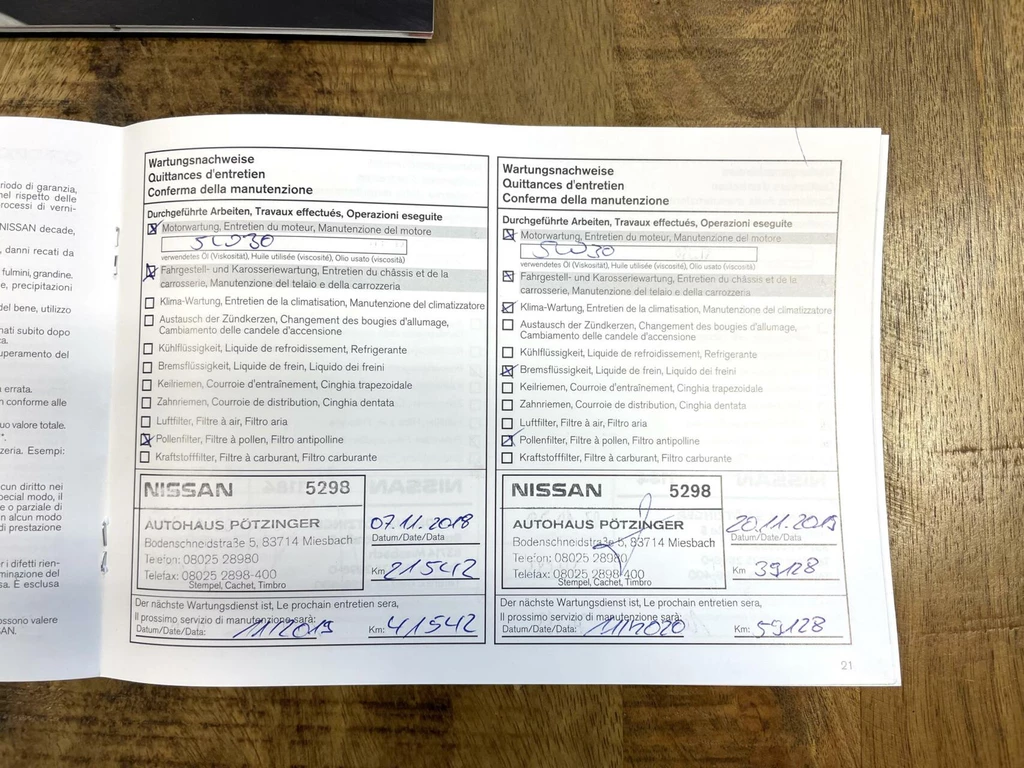 riodo di garanzia,
nel rispetto delle
rocessi di verni-
NISSAN decade,
, danni recati da
fulmini, grandine.
e, precipitazioni
del bene, utilizzo
nati subito dopo
ca.
uperamento del
errata.
n conforme alle
uo valore totale.
zeria. Esempi:
cun diritto nei
pecial modo, il
e o parziale di
n alcun modo
di prestazione
r i difetti rien-
minazione del
sa. È esclusa
ossono valere
SAN.
Wartungsnachweise
Quittances d'entretien
Conferma della manutenzione
Durchgeführte Arbeiten, Travaux effectués, Operazioni eseguite
Motorwartung, Entretien du moteur, Manutenzione del motore
5W30
verwendetes Öl (Viskosität), Huile utilisée (viscosité), Olio usato (viscosità)
Fahrgestell- und Karosseriewartung, Entretien du châssis et de la
carrosserie, Manutenzione del telaio e della carrozzeria
Klima-Wartung, Entretien de la climatisation, Manutenzione del climatizzatore
Austausch der Zündkerzen, Changement des bougies d'allumage,
Cambiamento delle candele d'accensione
Kühlflüssigkeit, Liquide de refroidissement, Refrigerante
Bremsflüssigkeit, Liquide de frein, Liquido dei freini
Keilriemen, Courroie d'entraînement, Cinghia trapezoidale
Zahnriemen, Courroie de distribution, Cinghia dentata
Luftfilter, Filtre à air, Filtro aria
Pollenfilter, Filtre à pollen, Filtro antipolline
Kraftstofffilter, Filtre à carburant, Filtro carburante
NISSAN 5298
AUTOHAUS PÖTZINGER
Bodenschneidstraße 5, 83714 Miesbach
Telefon: 08025 28980
Telefax: 08025 2898-400
Stempel, Cachet, Timbro
07.11.2018
Datum/Date/Data
Km 21542
Der nächste Wartungsdienst ist, Le prochain entretien sera,
Il prossimo servizio di manutenzione sarà:
Datum/Date/Data: 11/2019 Km: 41542
Wartungsnachweise
Quittances d'entretien
Conferma della manutenzione
Durchgeführte Arbeiten, Travaux effectués, Operazioni eseguite
Motorwartung, Entretien du moteur, Manutenzione del motore
5W30
verwendetes Öl (Viskosität), Huile utilisée (viscosité), Olio usato (viscosità)
Fahrgestell- und Karosseriewartung, Entretien du châssis et de la
carrosserie, Manutenzione del telaio e della carrozzeria
Klima-Wartung, Entretien de la climatisation, Manutenzione del climatizzatore
Austausch der Zündkerzen, Changement des bougies d'allumage,
Cambiamento delle candele d'accensione
Kühlflüssigkeit, Liquide de refroidissement, Refrigerante
Bremsflüssigkeit, Liquide de frein, Liquido dei freini
Keilriemen, Courroie d'entraînement, Cinghia trapezoidale
Zahnriemen, Courroie de distribution, Cinghia dentata
Luftfilter, Filtre à air, Filtro aria
Pollenfilter, Filtre à pollen, Filtro antipolline
Kraftstofffilter, Filtre à carburant, Filtro carburante
NISSAN 5298
AUTOHAUS PÖTZINGER
Bodenschneidstraße 5, 83714 Miesbach
Telefon: 08025 28980
Telefax: 08025 2898-400
Stempel, Cachet, Timbro
20.11.2019
Datum/Date/Data
Km 39128
Der nächste Wartungsdienst ist, Le prochain entretien sera,
Il prossimo servizio di manutenzione sarà:
Datum/Date/Data: 11/2020 Km: 59128
21